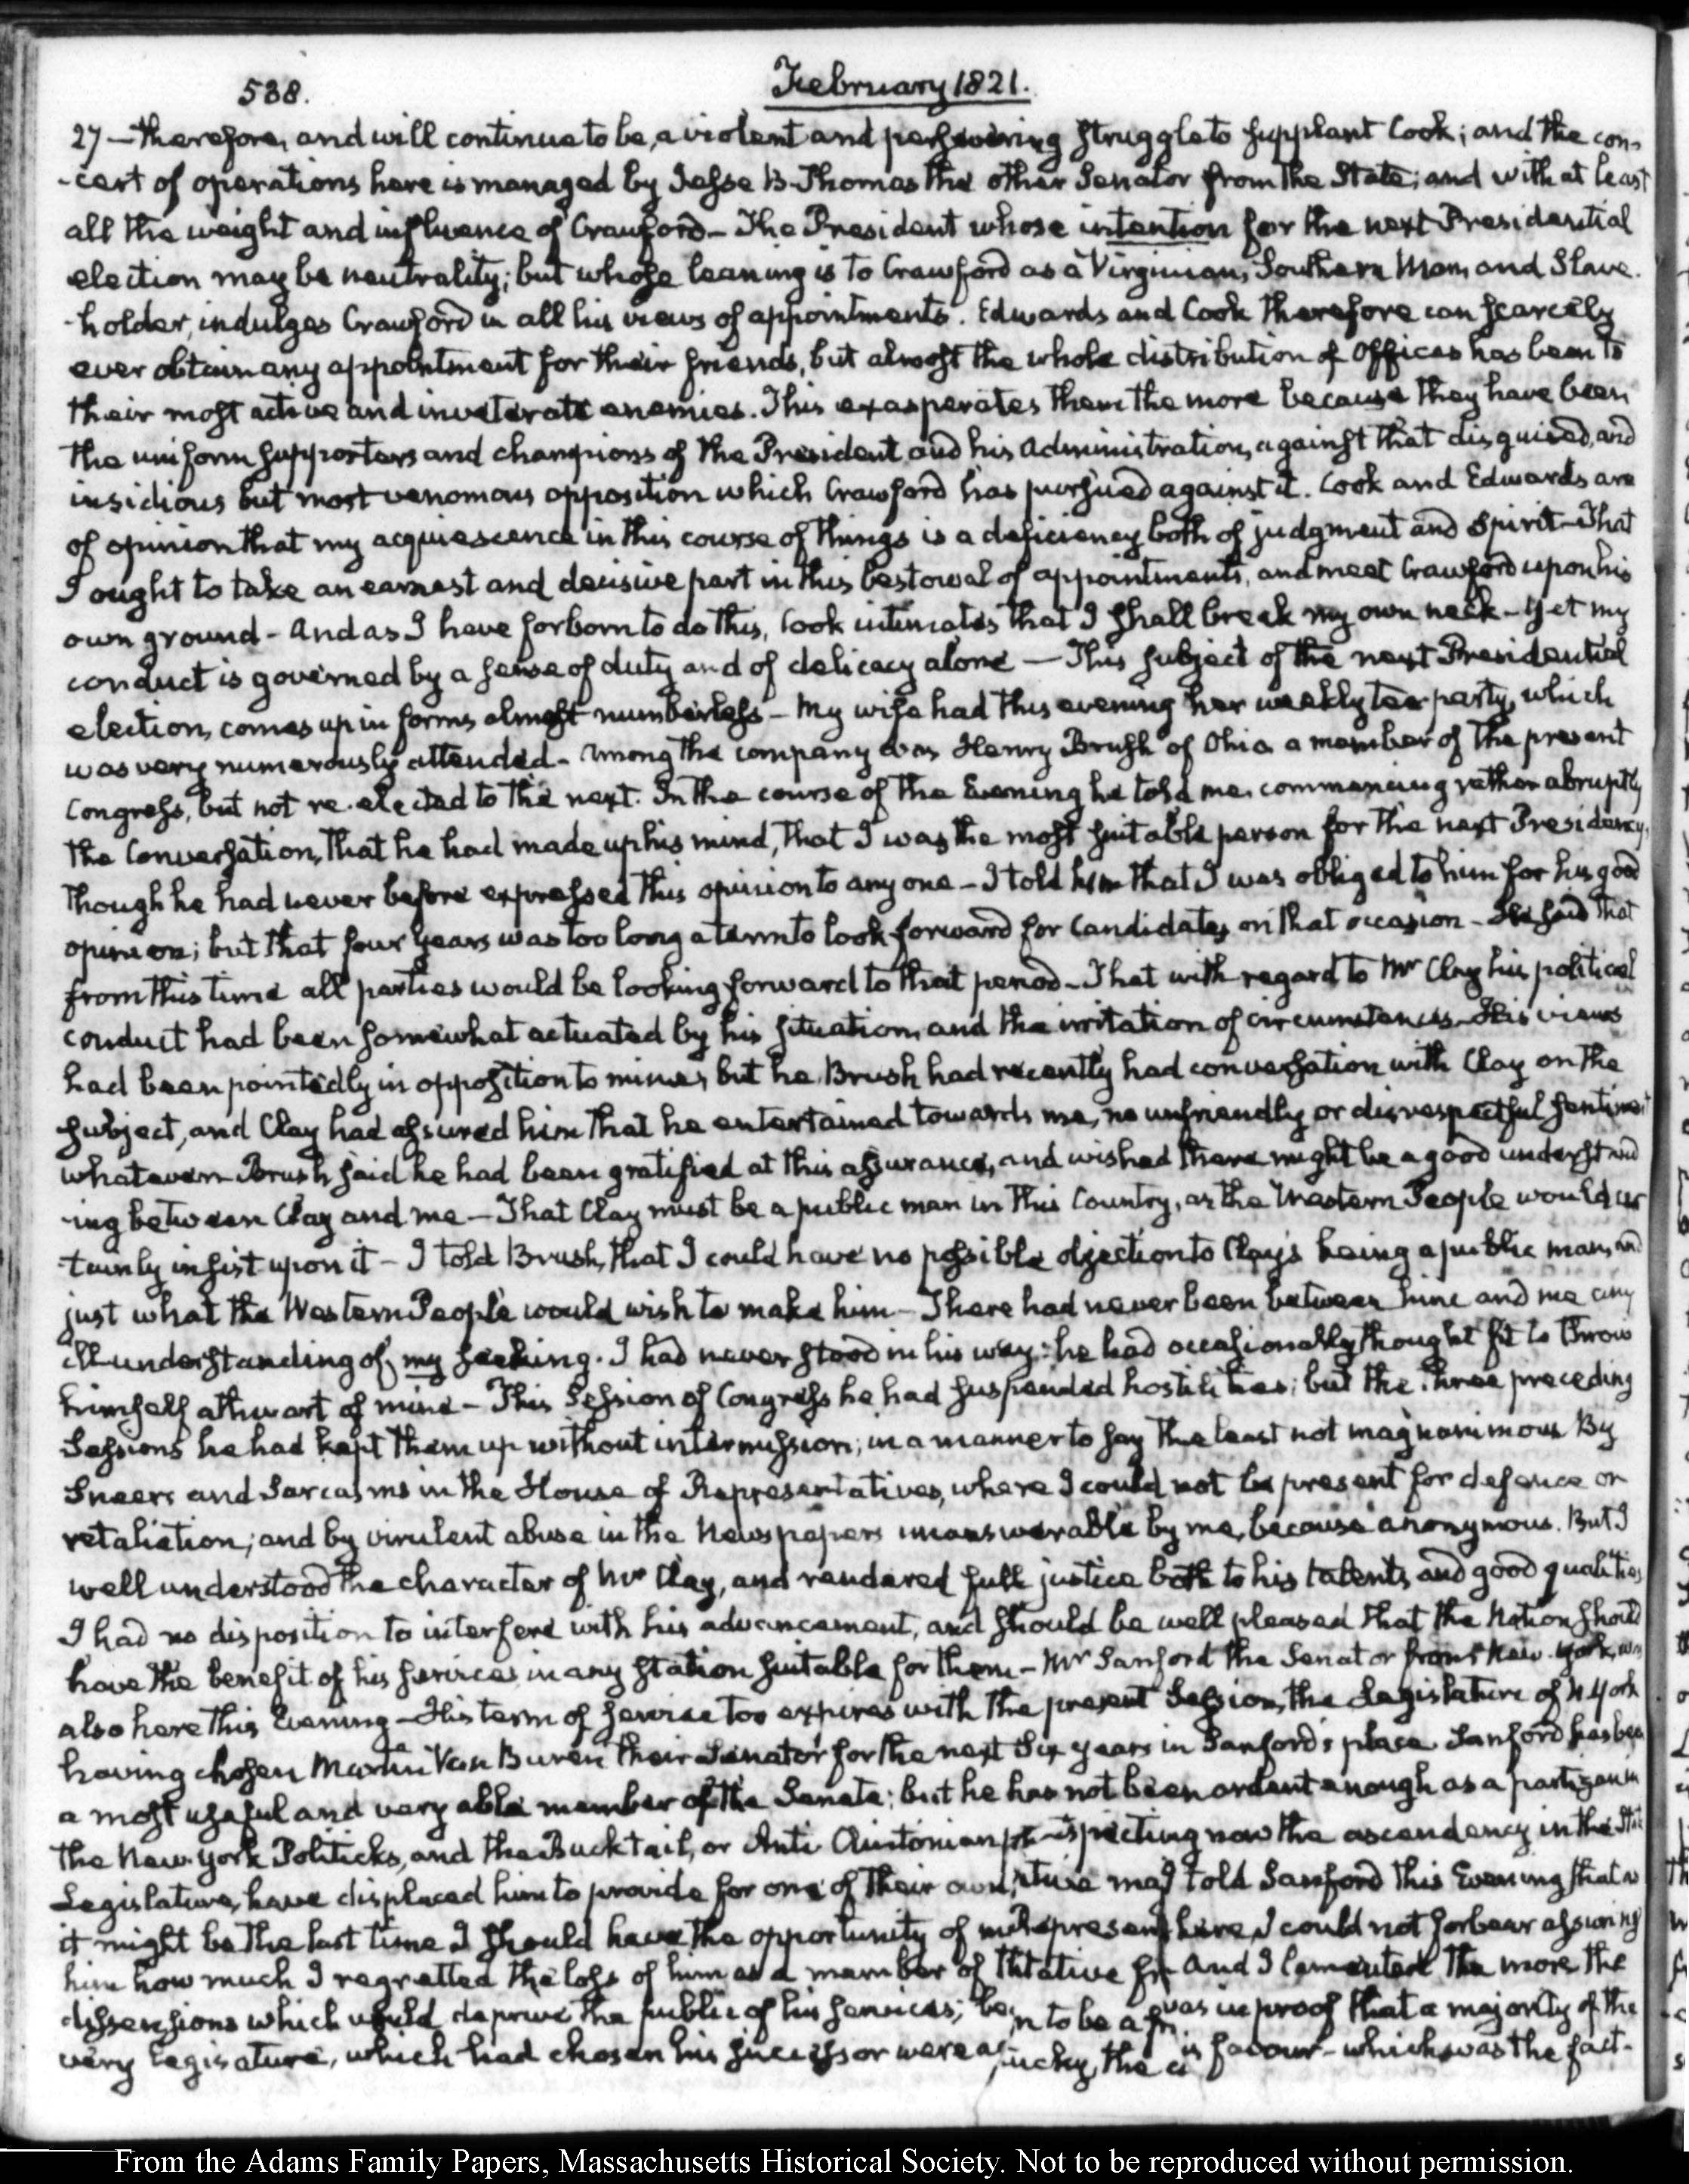 538.
February 1821.
27 — therefore, and will continue to be, a violent and persevering struggle to supplant Cook; and the con-
-cert of operations here is managed by Jesse B. Thomas the other Senator from the State; and with at least
all the weight and influence of Crawford — The President whose intention for the next Presidential
election may be neutrality; but whose leaning is to Crawford as a Virginian, Southern Man, and Slave-
-holder, indulges Crawford in all his views of appointments. Edwards and Cook therefore can scarcely
ever obtain any appointment for their friends, but almost the whole distribution of Offices has been to
their most active and inveterate enemies. This exasperates them the more because they have been
the uniform supporters and champions of the President and his Administration, against that disguised, and
insidious but most venomous opposition which Crawford has pursued against it. Cook and Edwards are
of opinion that my acquiescence in this course of things is a deficiency both of judgment and Spirit — That
I ought to take an earnest and decisive part in this bestowal of appointments, and meet Crawford upon his
own ground — And as I have forborn to do this, Cook intimates that I shall break my own neck — Yet my
conduct is governed by a sense of duty and of delicacy alone — This subject of the next Presidential
election, comes up in forms almost numberless — My wife had this evening her weekly tea party, which
was very numerously attended — Among the company was Henry Brush of Ohio a member of the present
Congress, but not re-elected to the next. In the course of the Evening he told me, commencing rather abruptly
the Conversation, that he had made up his mind, that I was the most suitable person for the next Presidency,
though he had never before expressed this opinion to any one — I told him that I was obliged to him for his good
opinion; but that four years was too long a term to look forward for Candidates on that occasion — He said that
from this time all parties would be looking forward to that period — That with regard to Mr Clay his political
conduct had been somewhat actuated by his situation, and the irritation of circumstances — His views
had been pointedly in opposition to mine, but he, Brush had recently had conversation with Clay on the
subject, and Clay had assured him that he entertained towards me, no unfriendly or disrespectful sentiment
whatever — Brush said he had been gratified at this assurance, and wished there might be a good understand
-ing between Clay and me — That Clay must be a public man in this Country, as the Western People would cer
-tainly insist upon it — I told Brush, that I could have no possible objection to Clay's being a public man, and
just what the Western People would wish to make him — There had never been between him and me any
ill understanding of my seeking. I had never stood in his way: he had occasionally thought fit to throw
himself athwart of mine — This Session of Congress he had suspended hostilities; but the three preceding
Sessions he had kept them up without intermission; in a manner to say the least not magnanimous By
Sneers and Sarcasms in the House of Representatives, where I could not be present for defence or
retaliation; and by virulent abuse in the Newspapers unanswerable by me, because anonymous. But I
well understood the character of Mr Clay, and rendered full justice both to his talents, and good qualities
I had no disposition to interfere with his advancement, and should be well pleased that the Nation should
have the benefit of his services in any station suitable for them — Mr Sanford the Senator from New-York, was
also here this Evening — His term of service too expires with the present Session, the Legislature of N. York
having chosen Martin Van Buren their Senator for the next Six years in Sanford's place. Sanford has been
a most useful and very able member of the Senate; but he has not been ardent enough as a partizan in
the New-York Politicks, and the Bucktail, or Anti Clintonian pecting now the ascendency in the State
Legislature, have displaced him to provide for one of their own, I told Sanford this Evening that as
it might be the last time I should have the opportunity of here I could not forbear assuring
him how much I regretted the loss of him as a member of tative And I lamented the more the
dissensions which would deprive the public of his services; n to be a was in proof that a majority of the
very Legislature, which had chosen his successor were ucky, the favour — which was the fact —
From the Adams Family Papers, Massachusetts Historical Society. Not to be reproduced without permission.